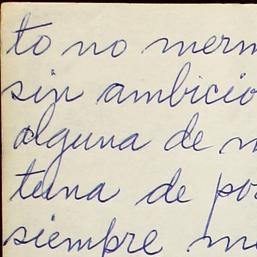 to no merm
sin ambicio
alguna de m
tuna de pos
siempre me